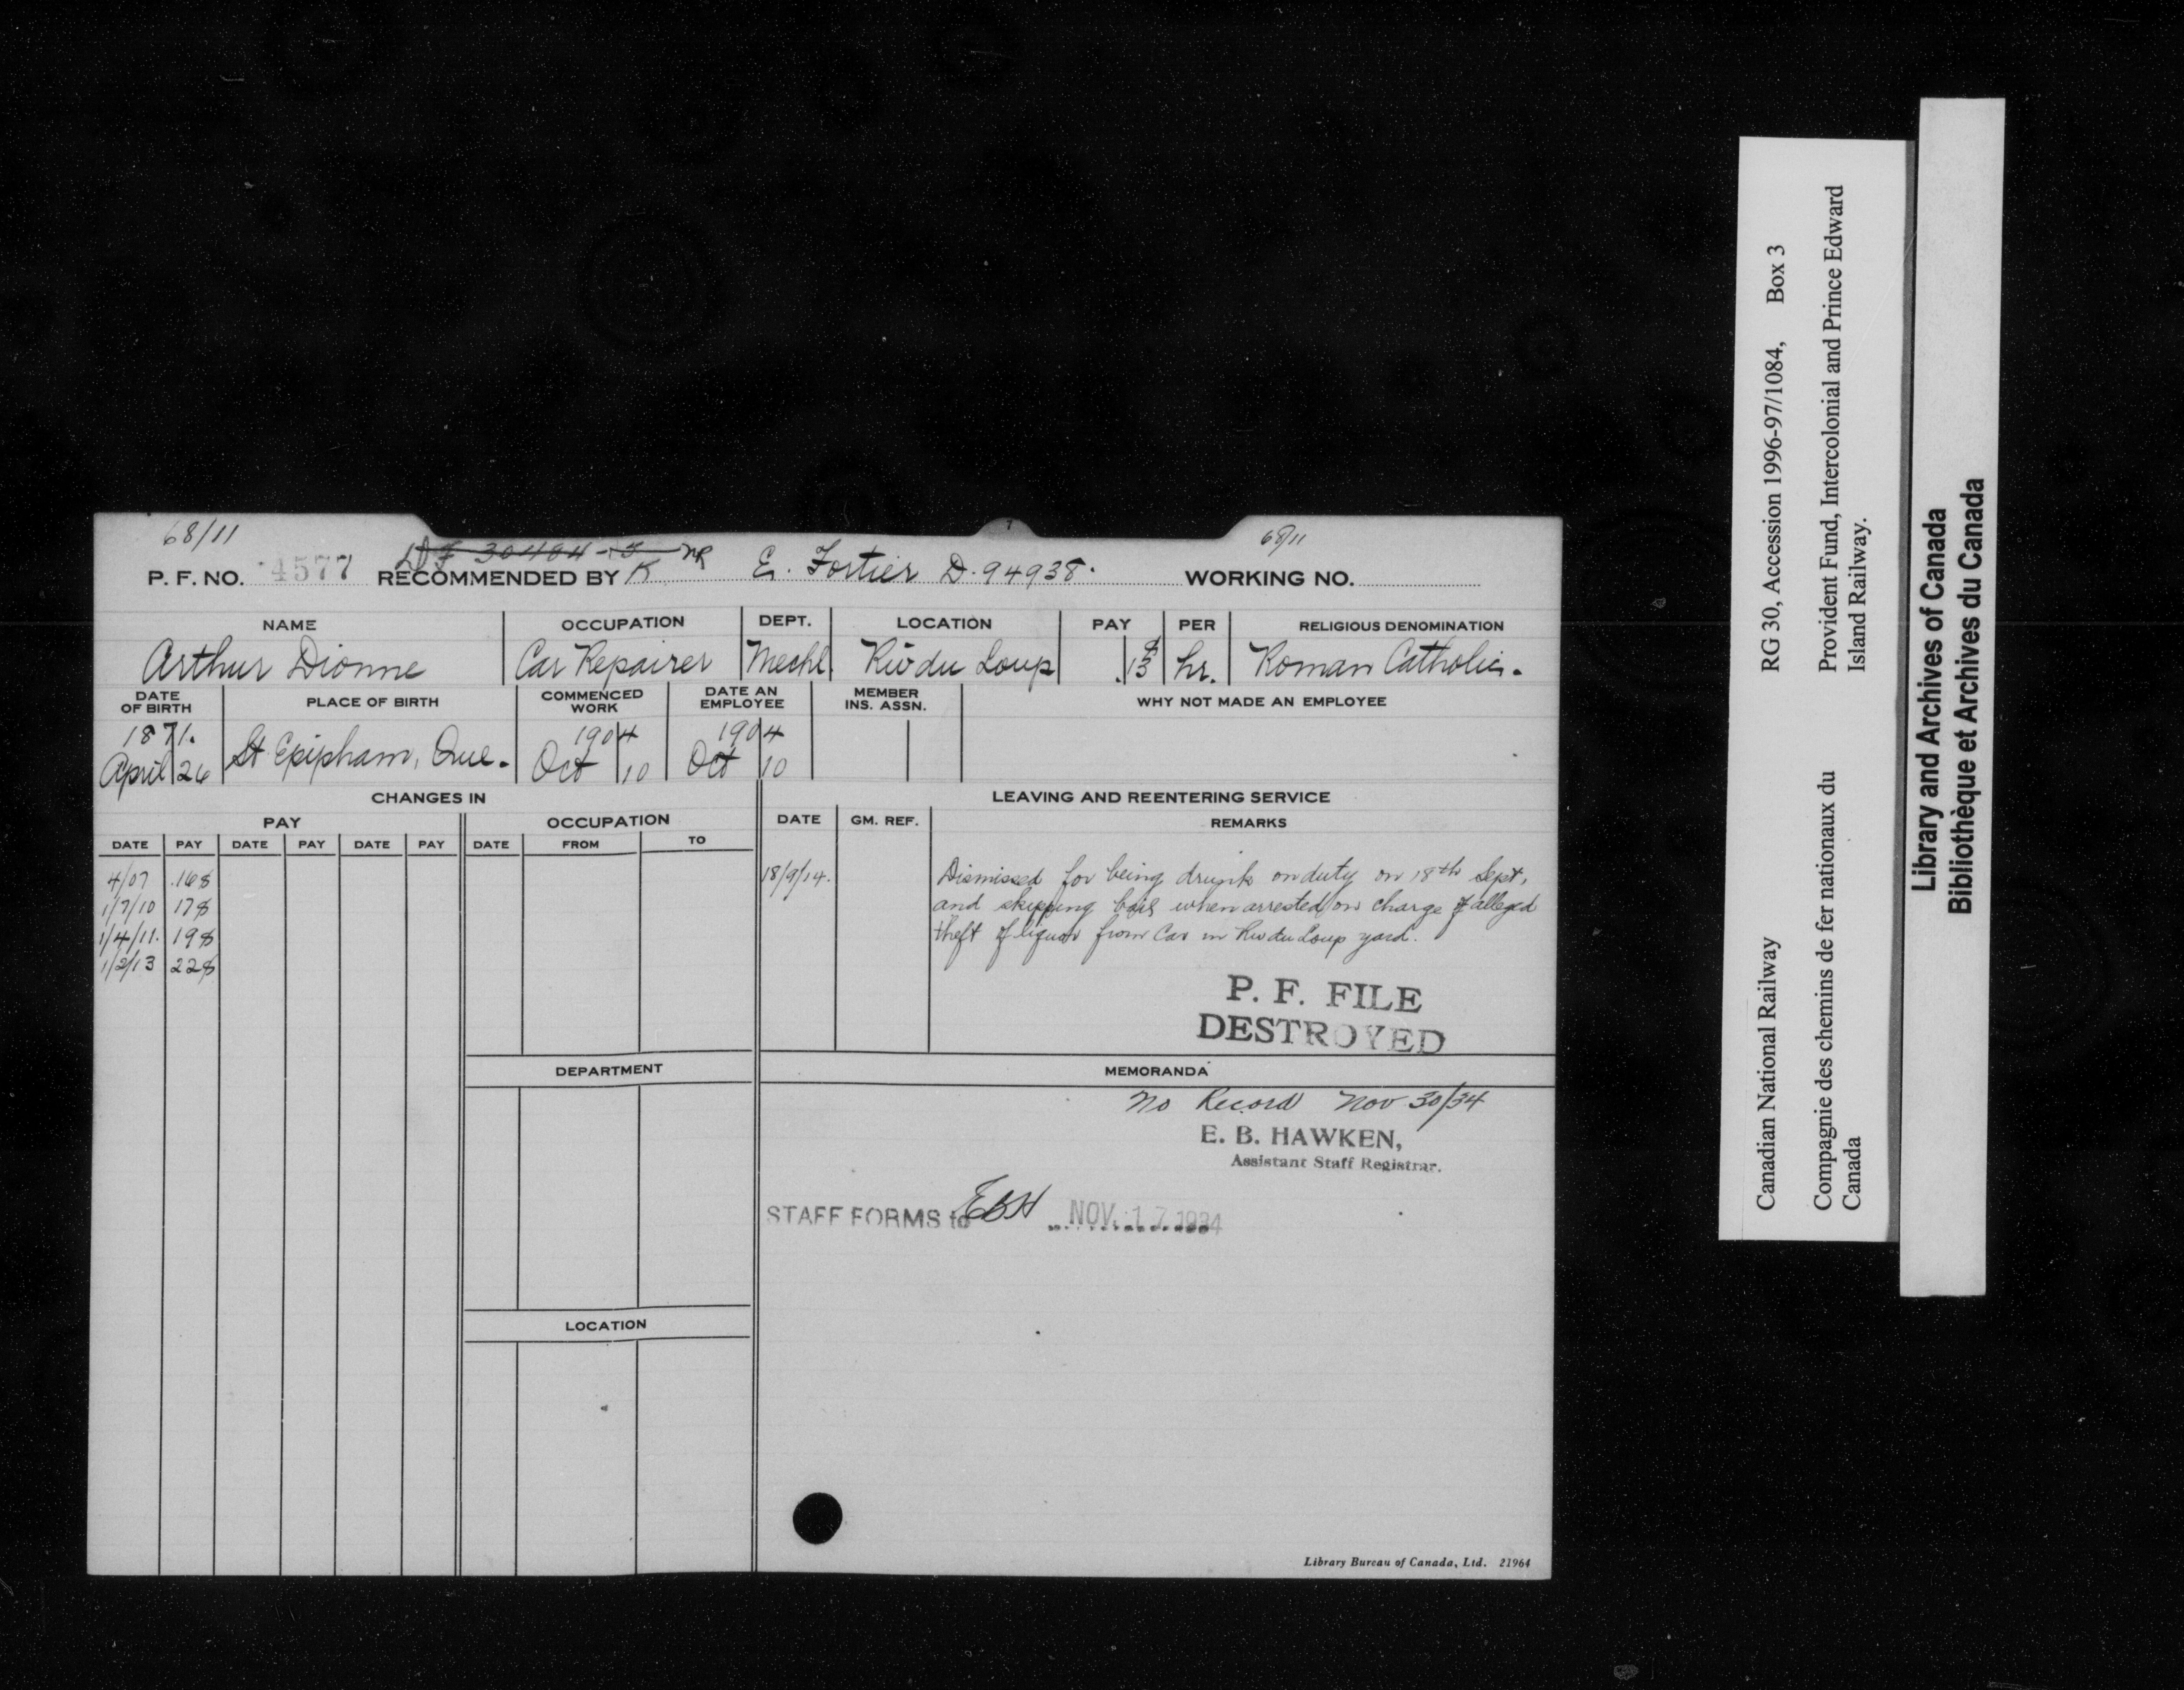 68/11
68/11
P. F. NO. 4577 RECOMMENDED BY K E. Fortier D. 94938. WORKING NO.
NAME OCCUPATION DEPT. LOCATION PAY PER RELIGIOUS DENOMINATION
Arthur Dionne Car Repairer Mechl. Riv du Loup .15¢ hr. Roman Catholic.
DATE OF BIRTH PLACE OF BIRTH COMMENCED WORK DATE AN EMPLOYEE MEMBER INS. ASSN. WHY NOT MADE AN EMPLOYEE
1871. 1904 1904
April 26 St Epipham, Que. Oct 10 Oct 10
CHANGES IN LEAVING AND REENTERING SERVICE
PAY OCCUPATION DATE GM. REF. REMARKS
DATE PAY DATE PAY DATE PAY DATE FROM TO
4/07 .16¢
1/7/10 17¢
1/4/11. 19¢
1/2/13 22¢
18/9/14. Dismissed for being drunk on duty on 18th Sept,
and skipping bail when arrested on charge of alleged
theft of liquor from Car in Riv du Loup yard.
P. F. FILE
DESTROYED
DEPARTMENT
MEMORANDA
No Record Nov 30/34
E. B. HAWKEN,
Assistant Staff Registrar.
STAFF FORMS to EBH NOV. 17 1934
LOCATION
Library Bureau of Canada, Ltd. 21964
Canadian National Railway RG 30, Accession 1996-97/1084, Box 3
Compagnie des chemins de fer nationaux du Canada
Provident Fund, Intercolonial and Prince Edward
Island Railway.
Library and Archives of Canada
Bibliothèque et Archives du Canada